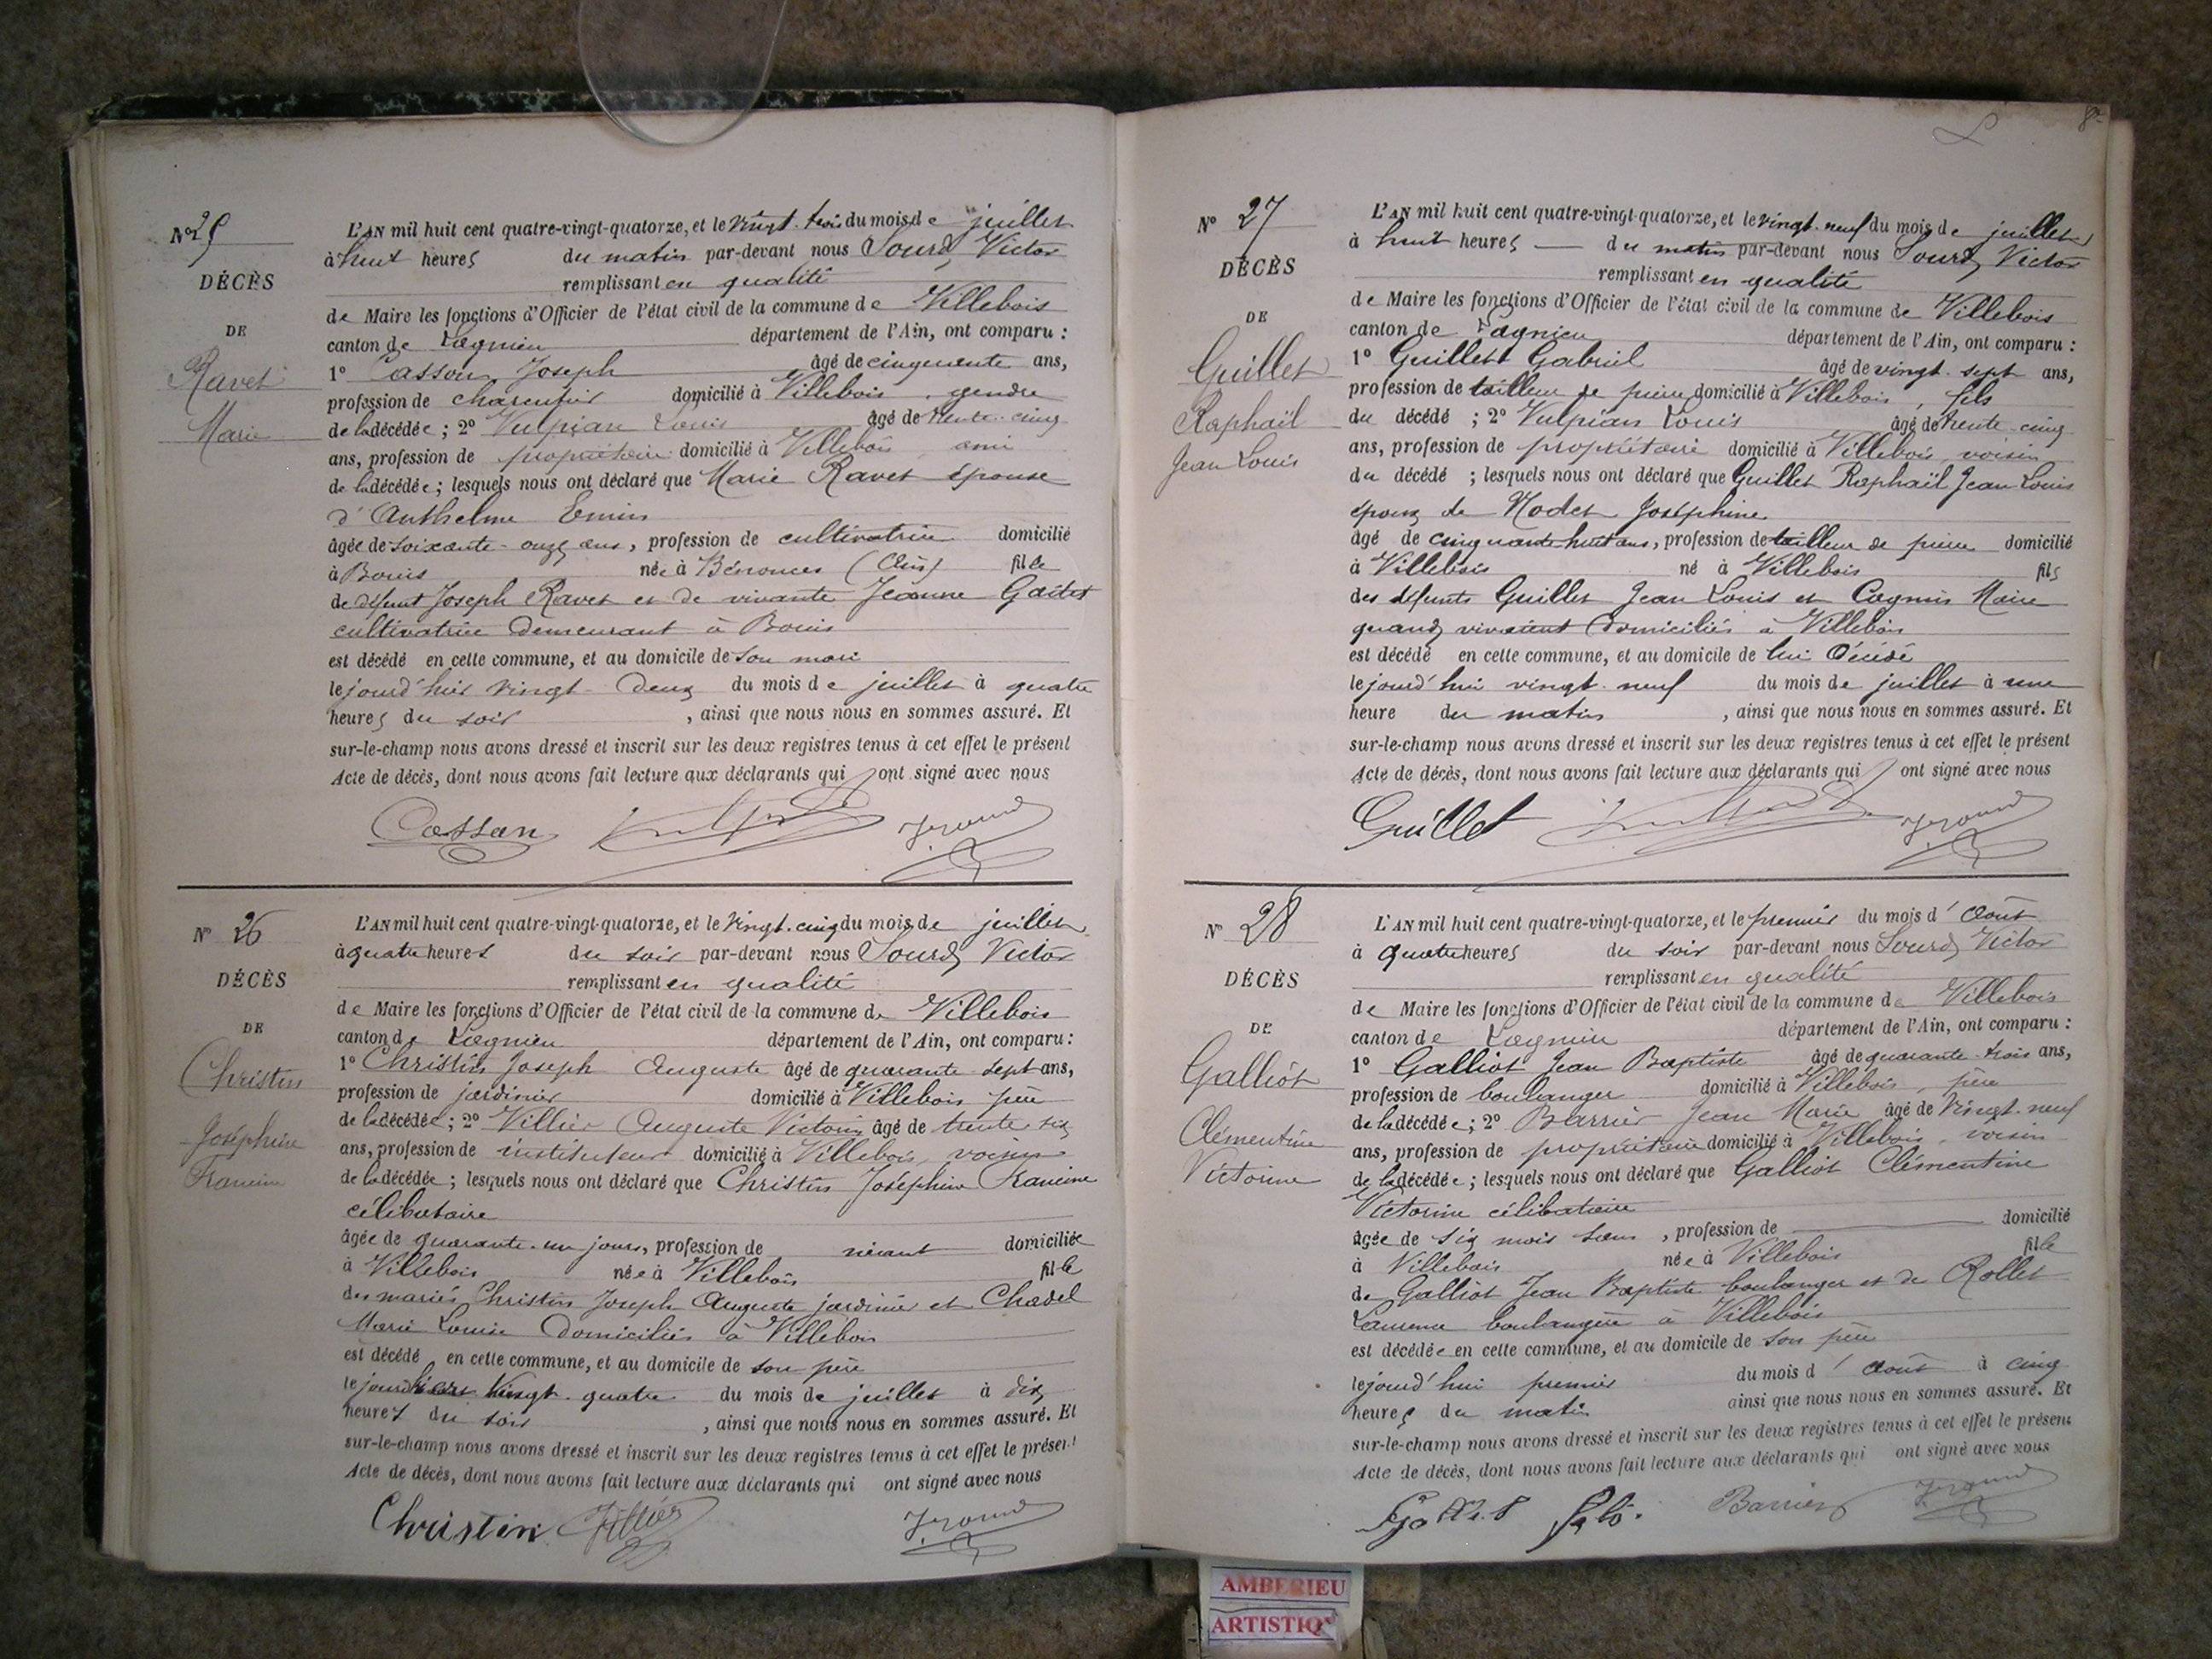 N° 25
DÉCÈS
DE
Ravet
Marie
L'AN mil huit cent quatre-vingt-quatorze, et le vingt-trois du mois de juillet
à huit heures du matin par-devant nous Sourd, Victor
remplissant en qualité
de Maire les fonctions d'Officier de l'état civil de la commune de Villebois
canton de Lagnieu département de l'Ain, ont comparu :
1° Cassan Joseph âgé de cinquante ans,
profession de charcutier domicilié à Villebois, gendre
de la décédée ; 2° Vulpian Louis âgé de trente-cinq
ans, profession de propriétaire domicilié à Villebois ami
de la décédée ; lesquels nous ont déclaré que Marie Ravet épouse
d'Anthelme
âgée de soixante-onze ans, profession de cultivatrice domicilié
à Bouis née à Bénonces (Ain) fille
de défunt Joseph Ravet et de vivante Jeanne
cultivatrice demeurant à Bouis
est décédé en cette commune, et au domicile de son mari
le jourd'hier vingt-deux du mois de juillet à quatre
heures du soir , ainsi que nous nous en sommes assuré. Et
sur-le-champ nous avons dressé et inscrit sur les deux registres tenus à cet effet le présent
Acte de décès, dont nous avons fait lecture aux déclarants qui ont signé avec nous
Cassan
N° 26
DÉCÈS
DE
Christin
Joséphine
Francine
L'AN mil huit cent quatre-vingt-quatorze, et le vingt-cinq du mois de juillet
à quatre heures du soir par-devant nous Sourd, Victor
remplissant en qualité
de Maire les fonctions d'Officier de l'état civil de la commune de Villebois
canton de Lagnieu département de l'Ain, ont comparu :
1° Christin Joseph Auguste âgé de quarante-sept ans,
profession de jardinier domicilié à Villebois père
de la décédée ; 2° Villier Auguste Victorin âgé de trente six
ans, profession de instituteur domicilié à Villebois, voisin
de la décédée ; lesquels nous ont déclaré que Christin Joséphine Francine
célibataire
âgée de quarante-un jours, profession de néant domiciliée
à Villebois née à Villebois fille
des mariés Christin Joseph Auguste jardinier et Chadel
Marie Louise domiciliés à Villebois
est décédé en cette commune, et au domicile de son père
le jourd'hier vingt-quatre du mois de juillet à dix
heures du soir , ainsi que nous nous en sommes assuré. Et
sur-le-champ nous avons dressé et inscrit sur les deux registres tenus à cet effet le présent
Acte de décès, dont nous avons fait lecture aux déclarants qui ont signé avec nous
Christin Villier
N° 27
DÉCÈS
DE
Guillet
Raphaïl
Jean Louis
L'AN mil huit cent quatre-vingt-quatorze, et le vingt-neuf du mois de juillet
à huit heures du matin par-devant nous Sourd, Victor
remplissant en qualité
de Maire les fonctions d'Officier de l'état civil de la commune de Villebois
canton de Lagnieu département de l'Ain, ont comparu :
1° Guillet Gabriel âgé de vingt-sept ans,
profession de tailleur de pierre domicilié à Villebois, fils
du décédé ; 2° Vulpian Louis âgé de trente-cinq
ans, profession de propriétaire domicilié à Villebois, voisin
du décédé ; lesquels nous ont déclaré que Guillet Raphaïl Jean Louis
époux de Modet Joséphine
âgé de cinquante huit ans, profession de tailleur de pierre domicilié
à Villebois né à Villebois fils
des défunts Guillet Jean Louis et Cagnin Marie
quand vivaient domiciliés à Villebois
est décédé en cette commune, et au domicile de lui décédé
le jourd'hui vingt-neuf du mois de juillet à une
heure du matin , ainsi que nous nous en sommes assuré. Et
sur-le-champ nous avons dressé et inscrit sur les deux registres tenus à cet effet le présent
Acte de décès, dont nous avons fait lecture aux déclarants qui ont signé avec nous
Guillet
N° 28
DÉCÈS
DE
Galliot
Clémentine
Victorine
L'AN mil huit cent quatre-vingt-quatorze, et le premier du mois d'août
à quatre heures du soir par-devant nous Sourd, Victor
remplissant en qualité
de Maire les fonctions d'Officier de l'état civil de la commune de Villebois
canton de Lagnieu département de l'Ain, ont comparu :
1° Galliot Jean Baptiste âgé de quarante-trois ans,
profession de boulanger domicilié à Villebois, père
de la décédée ; 2° Barrier Jean Marie âgé de vingt-neuf
ans, profession de propriétaire domicilié à Villebois, voisin
de la décédée ; lesquels nous ont déclaré que Galliot Clémentine
Victorine célibataire
âgée de six mois , profession de domicilié
à Villebois née à Villebois fille
de Galliot Jean Baptiste boulanger et de Rollet
Laurence boulangère à Villebois
est décédée en cette commune, et au domicile de son père
le jourd'hui premier du mois d'août à cinq
heures du matin ainsi que nous nous en sommes assuré. Et
sur-le-champ nous avons dressé et inscrit sur les deux registres tenus à cet effet le présent
Acte de décès, dont nous avons fait lecture aux déclarants qui ont signé avec nous
Barrier
AMBERIEU
ARTISTIQ